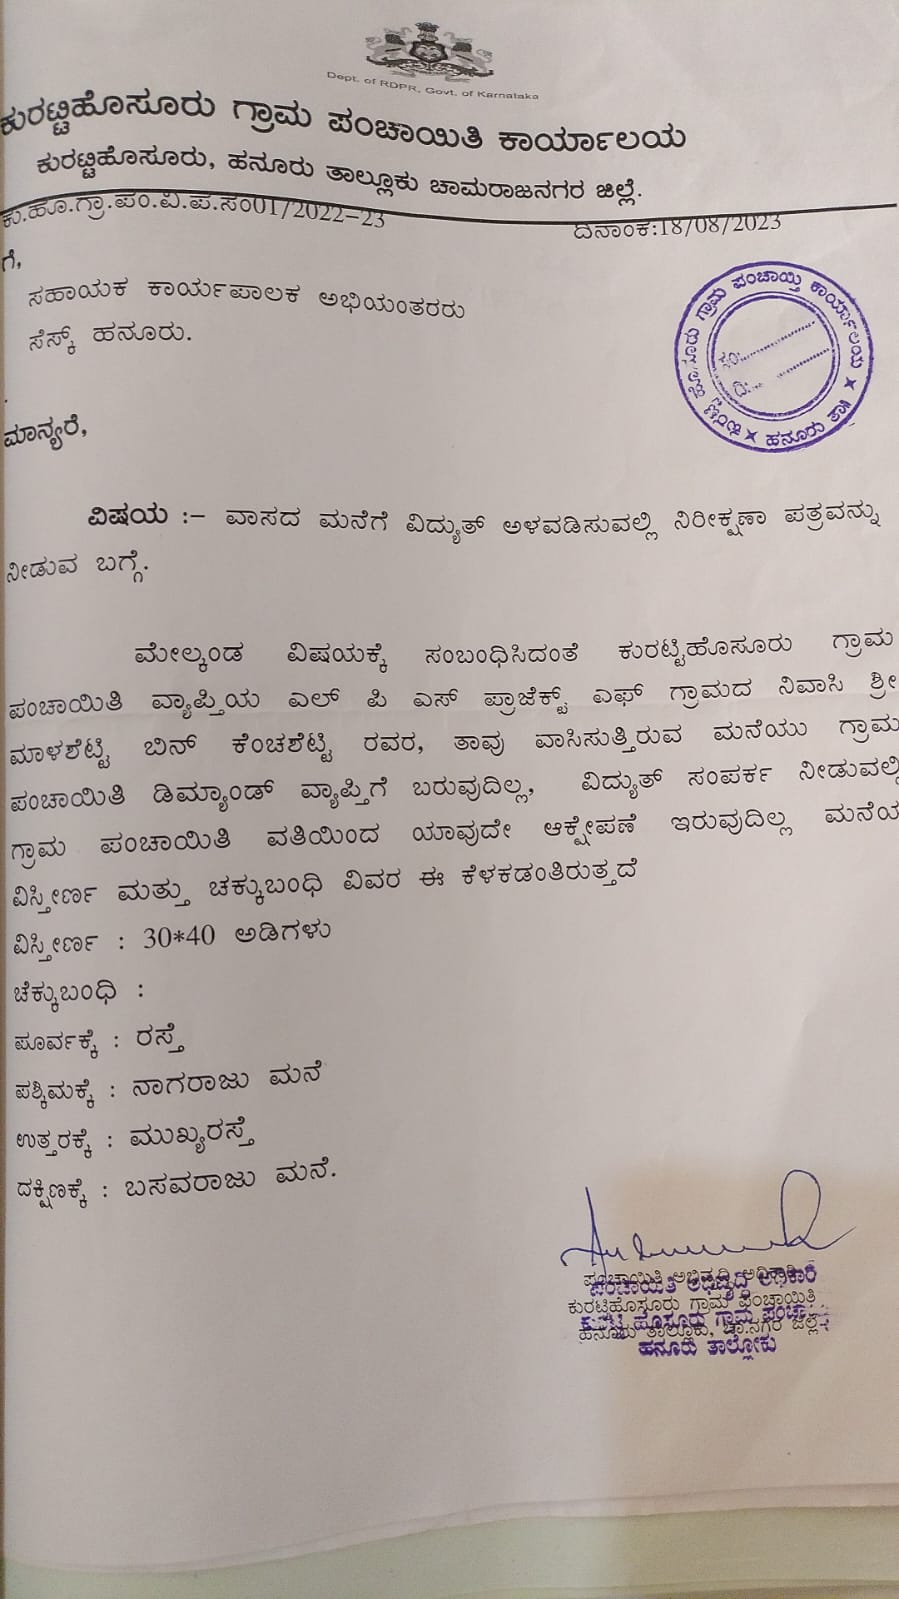 Dept. of RDPR, Govt. of Karnataka
ಕುರಟ್ಟಿಹೊಸೂರು ಗ್ರಾಮ ಪಂಚಾಯಿತಿ ಕಾರ್ಯಾಲಯ
ಕುರಟ್ಟಿಹೊಸೂರು, ಹನೂರು ತಾಲ್ಲೂಕು ಚಾಮರಾಜನಗರ ಜಿಲ್ಲೆ.
ಕು.ಹೂ.ಗ್ರಾ.ಪಂ.ವಿ.ಪ.ಸಂ01/2022-23 ದಿನಾಂಕ:18/08/2023
ಗೆ,
ಸಹಾಯಕ ಕಾರ್ಯಪಾಲಕ ಅಭಿಯಂತರರು
ಸೆಸ್ಕ್ ಹನೂರು.
ಗ್ರಾಮ ಪಂಚಾಯ್ತಿ ಕಾರ್ಯಾಲಯ ★ ಹನೂರು ತಾ॥ ★
ಸಂ:
ದಿ:
.
ಮಾನ್ಯರೆ,
ವಿಷಯ :- ವಾಸದ ಮನೆಗೆ ವಿದ್ಯುತ್ ಅಳವಡಿಸುವಲ್ಲಿ ನಿರೀಕ್ಷಣಾ ಪತ್ರವನ್ನು
ನೀಡುವ ಬಗ್ಗೆ.
ಮೇಲ್ಕಂಡ ವಿಷಯಕ್ಕೆ ಸಂಬಂಧಿಸಿದಂತೆ ಕುರಟ್ಟಿಹೊಸೂರು ಗ್ರಾಮ
ಪಂಚಾಯಿತಿ ವ್ಯಾಪ್ತಿಯ ಎಲ್ ಪಿ ಎಸ್ ಪ್ರಾಜೆಕ್ಟ್ ಎಫ್ ಗ್ರಾಮದ ನಿವಾಸಿ ಶ್ರೀ
ಮಾಳಶೆಟ್ಟಿ ಬಿನ್ ಕೆಂಚಶೆಟ್ಟಿ ರವರ, ತಾವು ವಾಸಿಸುತ್ತಿರುವ ಮನೆಯು ಗ್ರಾಮ
ಪಂಚಾಯಿತಿ ಡಿಮ್ಯಾಂಡ್ ವ್ಯಾಪ್ತಿಗೆ ಬರುವುದಿಲ್ಲ, ವಿದ್ಯುತ್ ಸಂಪರ್ಕ ನೀಡುವಲ್ಲಿ
ಗ್ರಾಮ ಪಂಚಾಯಿತಿ ವತಿಯಿಂದ ಯಾವುದೇ ಆಕ್ಷೇಪಣೆ ಇರುವುದಿಲ್ಲ ಮನೆಯ
ವಿಸ್ತೀರ್ಣ ಮತ್ತು ಚಕ್ಕುಬಂಧಿ ವಿವರ ಈ ಕೆಳಕಡಂತಿರುತ್ತದೆ
ವಿಸ್ತೀರ್ಣ : 30*40 ಅಡಿಗಳು
ಚೆಕ್ಕುಬಂಧಿ :
ಪೂರ್ವಕ್ಕೆ : ರಸ್ತೆ
ಪಶ್ಕಿಮಕ್ಕೆ : ನಾಗರಾಜು ಮನೆ
ಉತ್ತರಕ್ಕೆ : ಮುಖ್ಯರಸ್ತೆ
ದಕ್ಷಿಣಕ್ಕೆ : ಬಸವರಾಜು ಮನೆ.
ಪಂಚಾಯಿತಿ ಅಭಿವೃದ್ಧಿ ಅಧಿಕಾರಿ
ಕುರಟ್ಟಿಹೊಸೂರು ಗ್ರಾಮ ಪಂಚಾಯಿತಿ
ಹನೂರು ತಾಲ್ಲೂಕು, ಚಾ.ನಗರ ಜಿಲ್ಲೆ.
ಹನೂರು ತಾಲ್ಲೋಕು